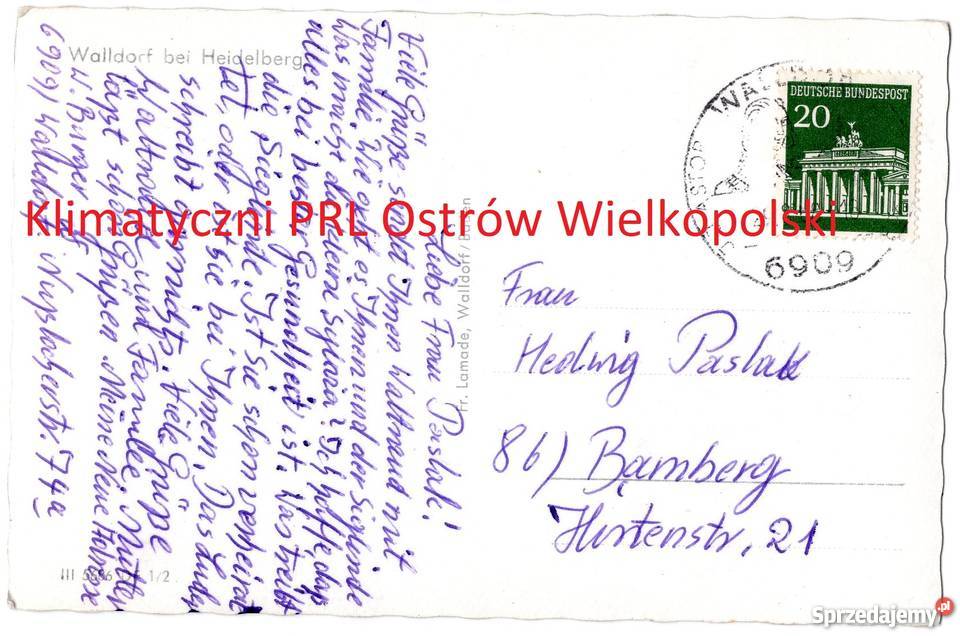 Walldorf bei Heidelberg
Liebe Frau Paslak!
Viele Grüße sendet Ihnen Waltraud mit
Familie. Wie geht es Ihnen und der Sieglinde
Was macht kleine Sylvia? Ich hoffe das
alles bei bester Gesundheit ist. Was treibt
die Sieglinde. Ist sie schon verheira
tet, oder ist sie bei Ihnen. Das
schreibt gar nicht. Viele Grüße
Waltraud Familie. Mutter
läßt schön grüßen. Meine Neue
W. Burger
6909 Walldorf Nußlocherstr. 74a
Fr. Lamade, Walldorf/Baden
III 1/2
DEUTSCHE BUNDESPOST
20
6909
Frau
Hedwig Paslak
86) Bamberg
Hirtenstr. 21
Klimatyczni PRL Ostrów Wielkopolski
Sprzedajemy.pl